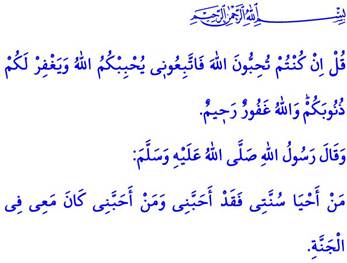 بِسْمِ اللهِ الرَّحْمٰنِ الرَّحِيمِ
قُلْ اِنْ كُنْتُمْ تُحِبُّونَ اللهَ فَاتَّبِعُونٖى يُحْبِبْكُمُ اللهُ وَيَغْفِرْ لَكُمْ
ذُنُوبَكُمْؕ وَاللهُ غَفُورٌ رَحٖيمٌ.
وَقَالَ رَسُولُ اللهِ صَلَّى اللهُ عَلَيْهِ وَسَلَّمَ:
مَنْ اَحْيَا سُنَّتِى فَقَدْ اَحَبَّنِى وَمَنْ اَحَبَّنِى كَانَ مَعِى فِى
الْجَنَّةِ.